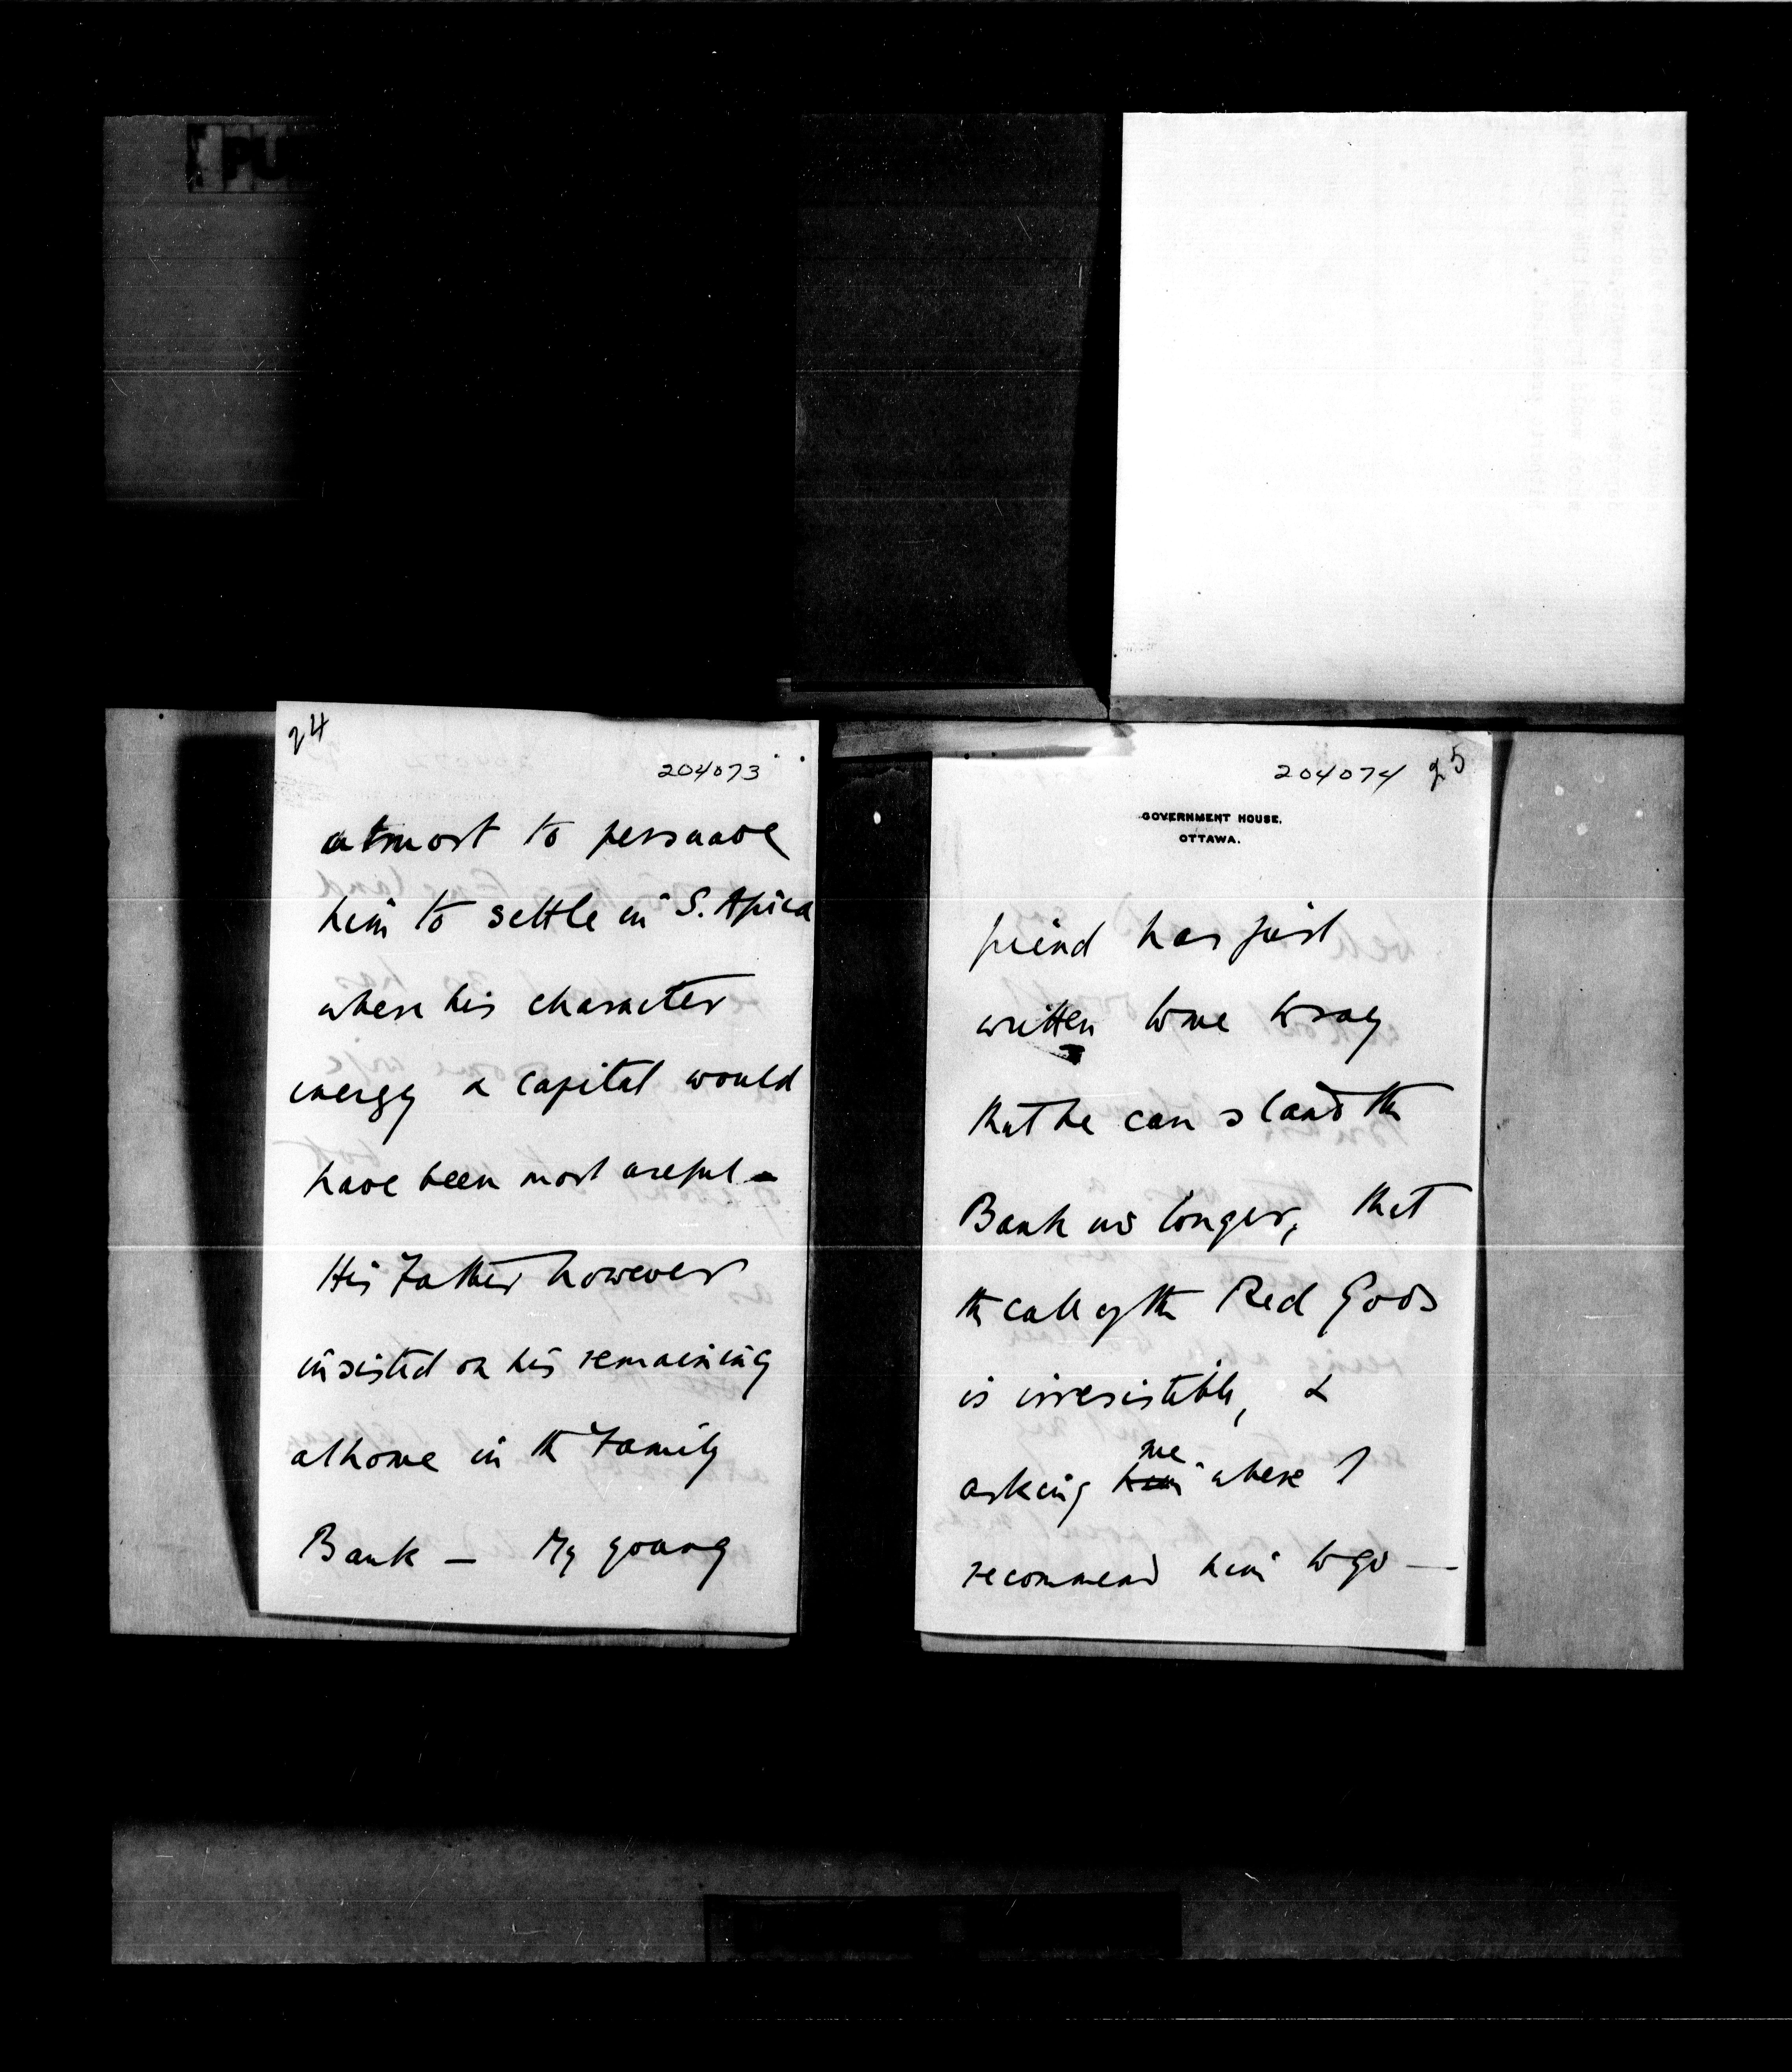 PU
24
204073
utmost to persuade
him to settle in S. Africa
where his character
energy & capital would
have been most useful -
His Father however
insisted on his remaining
at home in the Family
Bank — My young
204074 25
GOVERNMENT HOUSE,
OTTAWA.
friend has just
written to me to say
that he can stand the
Bank no longer, that
the call of the Red Gods
is irresistible, &
me
asking him where I
recommend him to go —